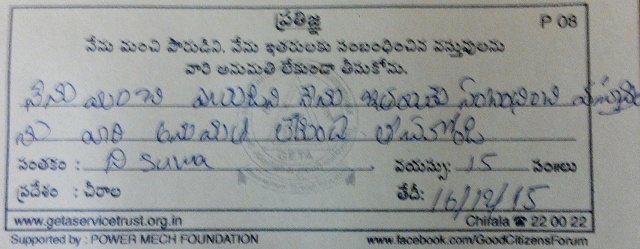 ప్రతిజ్ఞ
P 08
నేను మంచి పౌరుడిని. నేను ఇతరులకు సంబంధించిన వస్తువులను
వారి అనుమతి లేకుండా తీసుకోను.
నేను మంచి పౌరుడిని నేను ఇతరులకు సంబంధించిన
ను వారి అనుమతి లేకుండా
సంతకం : వయస్సు: 15 సం॥లు
ప్రదేశం : చీరాల తేదీ: 16/12/15
www.getaservicetrust.org.in Chifala ☎ 22 00 22
Supported by : POWER MECH FOUNDATION www.facebook.com/GoodCitizensForum